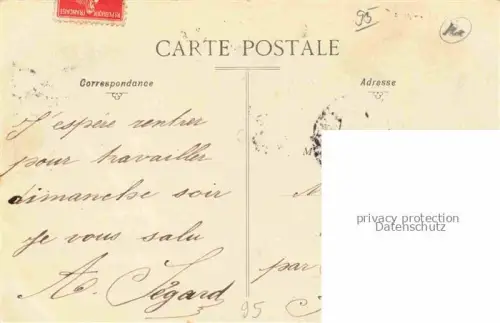 REPUBLIQUE FRANÇAISE
95
CARTE POSTALE
Correspondance
Adresse
J'espère rentrer
pour travailler
dimanche soir
je vous salu
A. Ségard
M
M
par
95
privacy protection
Datenschutz